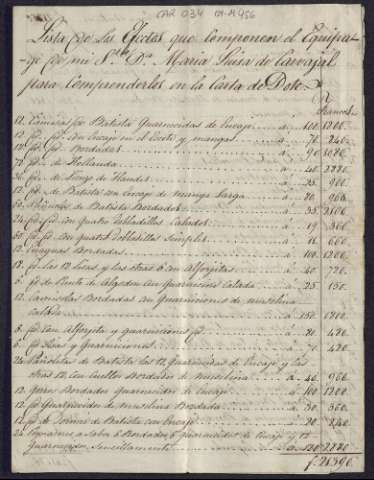 CAR 034 01-M 456
Lista de los Efectos que componen el Equipa-
ge de mi Sª. Dª. Maria Luisa de Carvajal
para Comprenderlos en la Carta de Dote
Francos
12. Camisas de Batista Guarnecidas de Encaje a 100 1200.
12. id. id. con Encaje en el Escote y mangas a 70 840.
12. id. id. Bordadas a 90 1080.
72. id. de Hollanda a 40 2880
36. id. de Lienzo de Flandes a 25 900
12. id. de Batista con Encaje de manga Larga a 80 960
60. de Batista Bordados a 35 2100
20. id. con quatro Dobladillos Calados a
60. id. con quatro Dobladillos Simples a 11 660
12. Enaguas Bordadas a 100 1200
18. id. las 12 Lisas, y las otras 6 con Alforjitas a 40 720.
6. id. de Punto de Algodon con Guarnicion Calada a 25 150
12. Camisolas Bordadas con Guarniciones de muselina
a 150
6. id. con Alforjita y guarniciones id. a
6. id. Lisas y Guarniciones a 420
24. Pañoletas de Batista las 12, Guarnecidas de Encaje y las
otras 12 con Cuellos Bordados de muselina a 40 960
12. Gorros Bordados Guarnecidos de Encaje a 100 1200
12. id. Guarnecidos de muselina Bordada a 30 360
12. id. de Batista con Encaje a 20 240
24. a Saber 6 Bordados 6 guarnecidos de Encaje y 12
Guarnecidos Sencillamente a 120 2880
f. 21390.